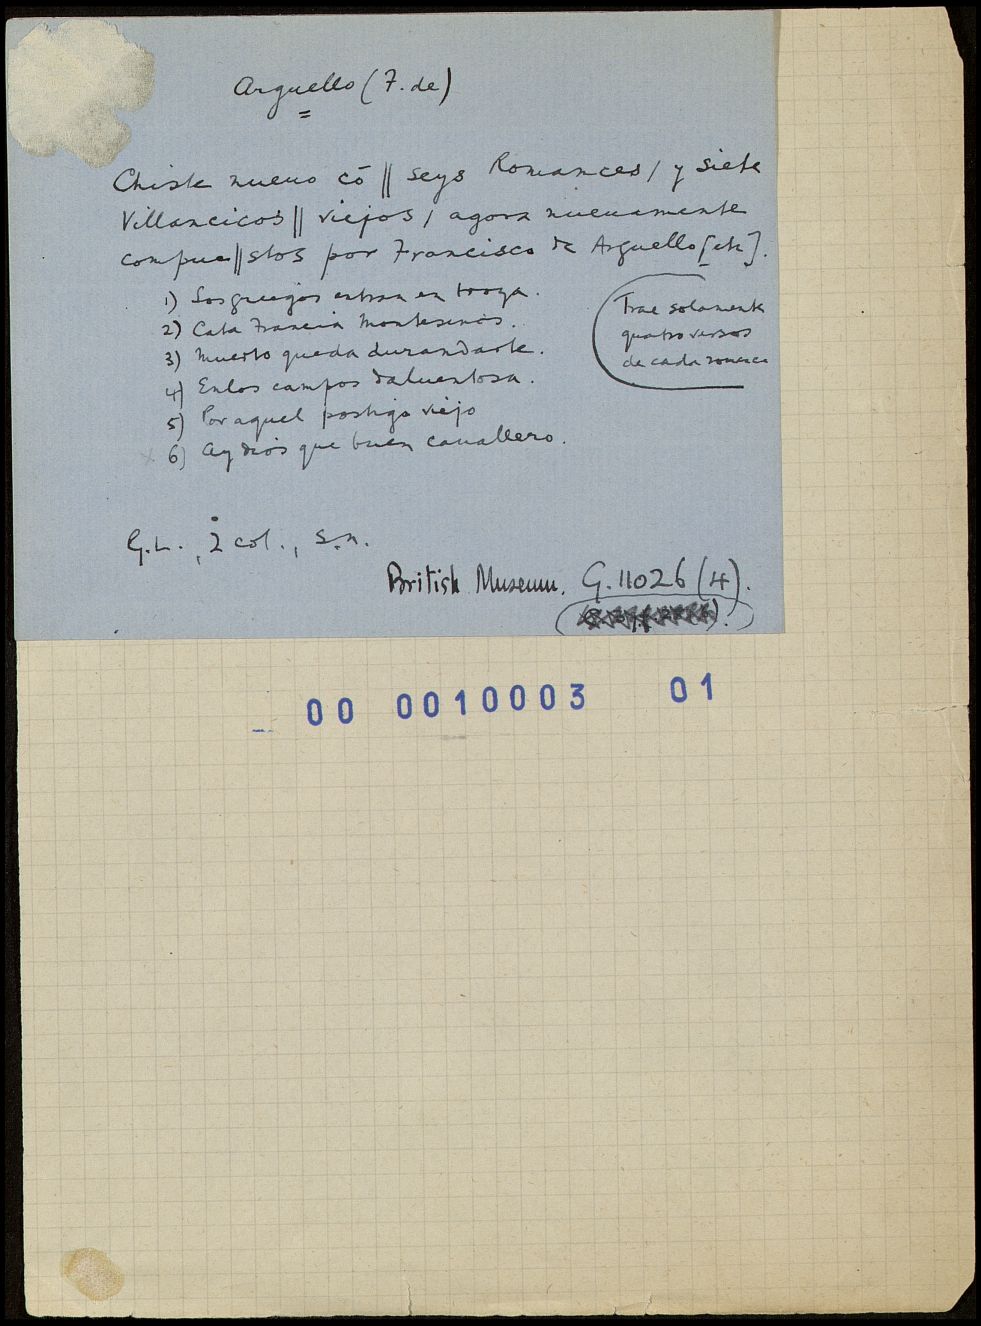 Arguello (F. de)
Chiste nueuo cō || seys Romances / y siete
Villancicos || viejos / agora nueuamente
compue||stos por Francisco de Arguello [etc].
1) Los griegos entran en troya.
2) Cata Francia Montesinos.
3) Muerto queda durandarte.
4) En los campos daluentosa.
5) Por aquel postigo viejo
6) Ay dios que buen cauallero.
Trae solamente
quatro versos
de cada romance
G.L., 2 col., s.n.
British Museum. G.11026 (4).
00 0010003 01